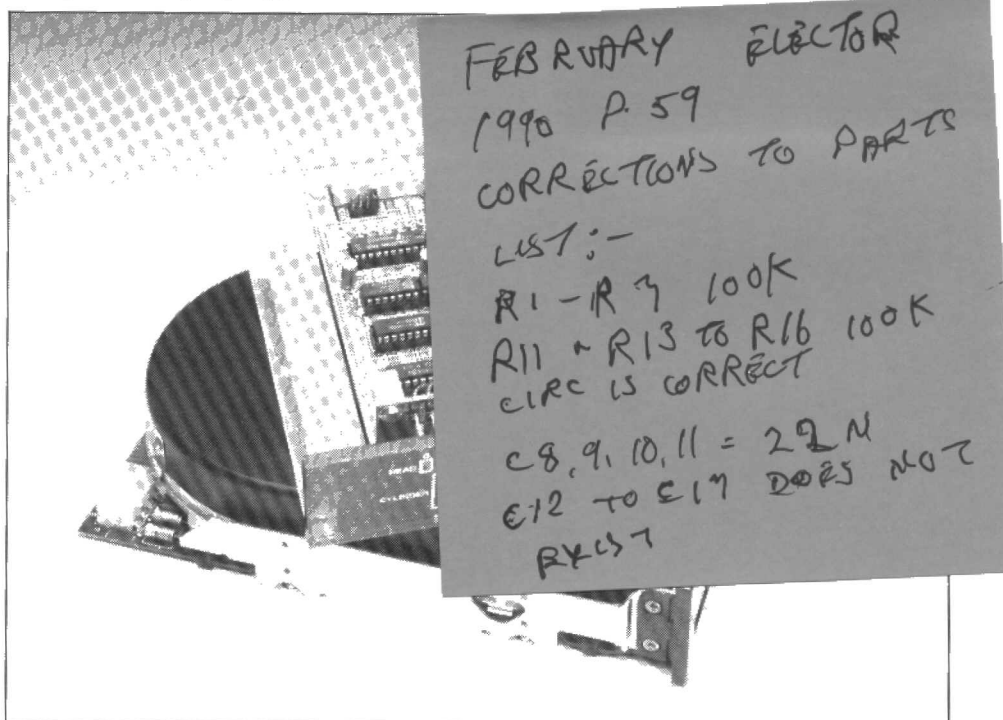 FEBRUARY ELECTOR
1990 P. 59
CORRECTIONS TO PARTS
LIST:-
R1 - R7 100K
R11 + R13 TO R16 100K
CIRC IS CORRECT
C8, 9, 10, 11 = 22 N
C12 TO C17 DOES NOT
EXIST
HEAD
CYLINDER